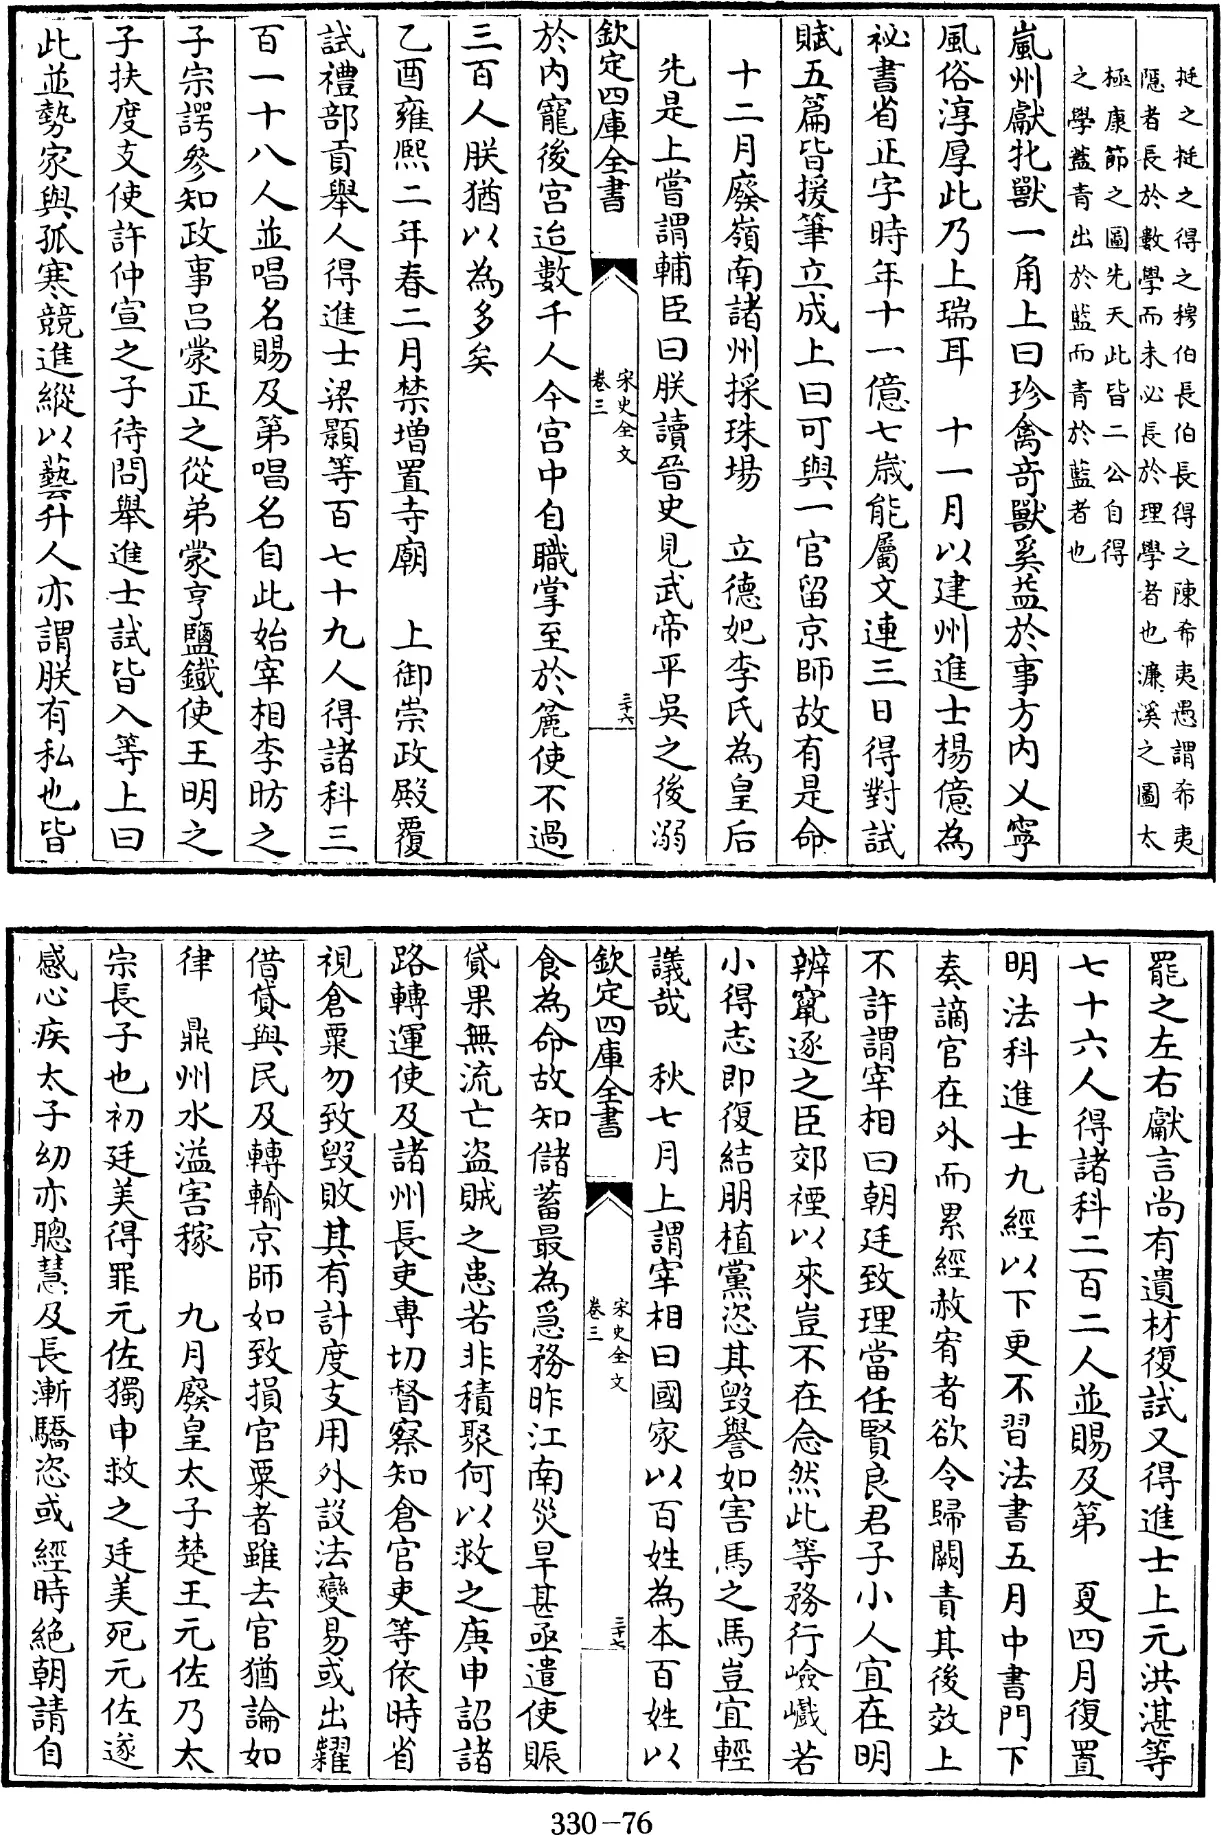 挺之挺之得之穆伯長伯長得之陳希夷愚謂希夷
隱者長於數學而未必長於理學者也濂溪之圖太
極康節之圖先天此皆二公自得
之學蓋青出於藍而青於藍者也
嵐州獻牝獸一角上曰珍禽奇獸奚益於事方内乂寧
風俗淳厚此乃上瑞耳　十一月以建州進士楊億為
祕書省正字時年十一億七歳能屬文連三日得對試
賦五篇皆援筆立成上曰可與一官留京師故有是命
十二月廢嶺南諸州採珠場　立德妃李氏為皇后
先是上嘗謂輔臣曰朕讀晉史見武帝平吳之後溺
欽定四庫全書
宋史全文
卷三
三十六
於内寵後宫迨數千人今宫中自職掌至於麄使不過
三百人朕猶以為多矣
乙酉雍熙二年春二月禁增置寺廟　上御崇政殿覆
試禮部貢舉人得進士梁顥等百七十九人得諸科三
百一十八人並唱名賜及第唱名自此始宰相李昉之
子宗諤參知政事吕蒙正之從弟蒙亨鹽鐵使王明之
子扶度支使許仲宣之子待問舉進士試皆入等上曰
此並勢家與孤寒競進縱以藝升人亦謂朕有私也皆
罷之左右獻言尚有遺材復試又得進士上元洪湛等
七十六人得諸科二百二人並賜及第　夏四月復置
明法科進士九經以下更不習法書五月中書門下
奏謫官在外而累經赦宥者欲令歸闕責其後效上
不許謂宰相曰朝廷致理當任賢良君子小人宜在明
辨竄逐之臣郊禋以來豈不在念然此等務行嶮巇若
小得志即復結朋植黨恣其毁譽如害馬之馬豈宜輕
議哉　秋七月上謂宰相曰國家以百姓為本百姓以
欽定四庫全書
宋史全文
卷三
三十七
食為命故知儲蓄最為急務昨江南災旱甚亟遣使賑
貸果無流亡盗賊之患若非積聚何以救之庚申詔諸
路轉運使及諸州長吏專切督察知倉官吏等依時省
視倉粟勿致毀敗其有計度支用外設法變易或出糶
借貸與民及轉輸京師如致損官粟者雖去官猶論如
律　鼎州水溢害稼　九月廢皇太子楚王元佐乃太
宗長子也初廷美得罪元佐獨申救之廷美死元佐遂
感心疾太子幼亦聰慧及長漸驕恣或經時絶朝請自
330-76